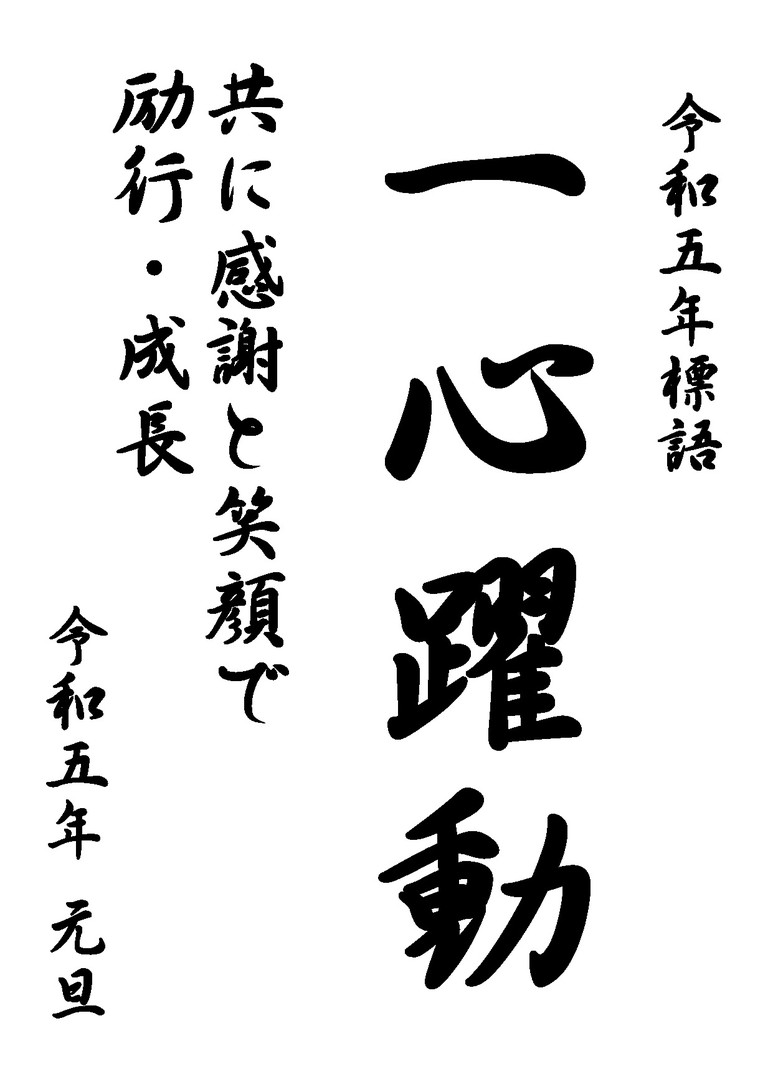 令和五年標語
一心躍動
共に感謝と笑顔で
励行・成長
令和五年 元旦